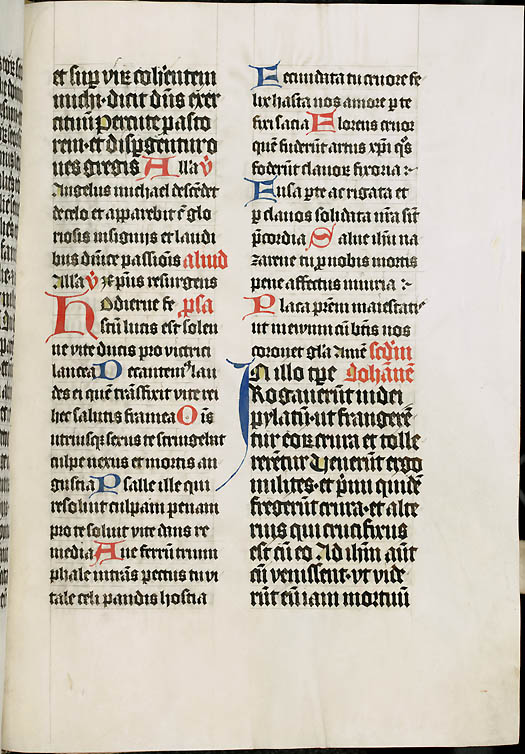 et sup̄ virū cohentem
michi · dicit dn̄s exer
cituū Percute pasto
rem · et disꝑgentur o
ues gregis Alla v̄
Angelus michael descēdet
decelo et apparebit ī glo
riosis insignijs et laudi
bus dn̄ice passiōis aliud
Alla v̄ xp̄us resurgens
Hodierne fe ꝓsa
stū lucis est solen
ne vite ducis pro victrici
lancea Decantemꝰ lau
des ei quē trāsfixit vite rei
hec salutis framea Oīs
utriusqꝫ sexus te stringelut
culpe nexus et mortis an
gustia Psalle ille qui
resoluit culpam penam
pro te soluit vite dans re
media Aue ferrū trium
phale intrās pectus tu vi
tale celi pandis hostia
Fecundata tu cruore fe
lix hasta nos amore ꝑ te
fixi sacia Florens cruor
quē fuderūt artus xp̄i qͦs
foderūt clauoꝝ fixoria :~
Fusa ꝑte ac rigata et
ꝑ clauos solidata nr̄a sīt
p̄cordia Salue ihū na
zarene tu ꝓ nobis mortis
pene affectus iniuria :~
Placa prēm maiestatis
ut in ewum cū bn̄is nos
coronet glā Amē scdm̄
In illo tꝑe Johannē
Rogauerūt iudei
pylatū · ut frangerē
tur eoꝝ crura et tolle
rentur Venerūt ergo
milites · et p̄mi quidē
fregerūt crura · et alte
rius qui crucifixus
est cū eo Ad ihm̄ aūt
cū venissent · vt vide
rūt eū iam mortuū